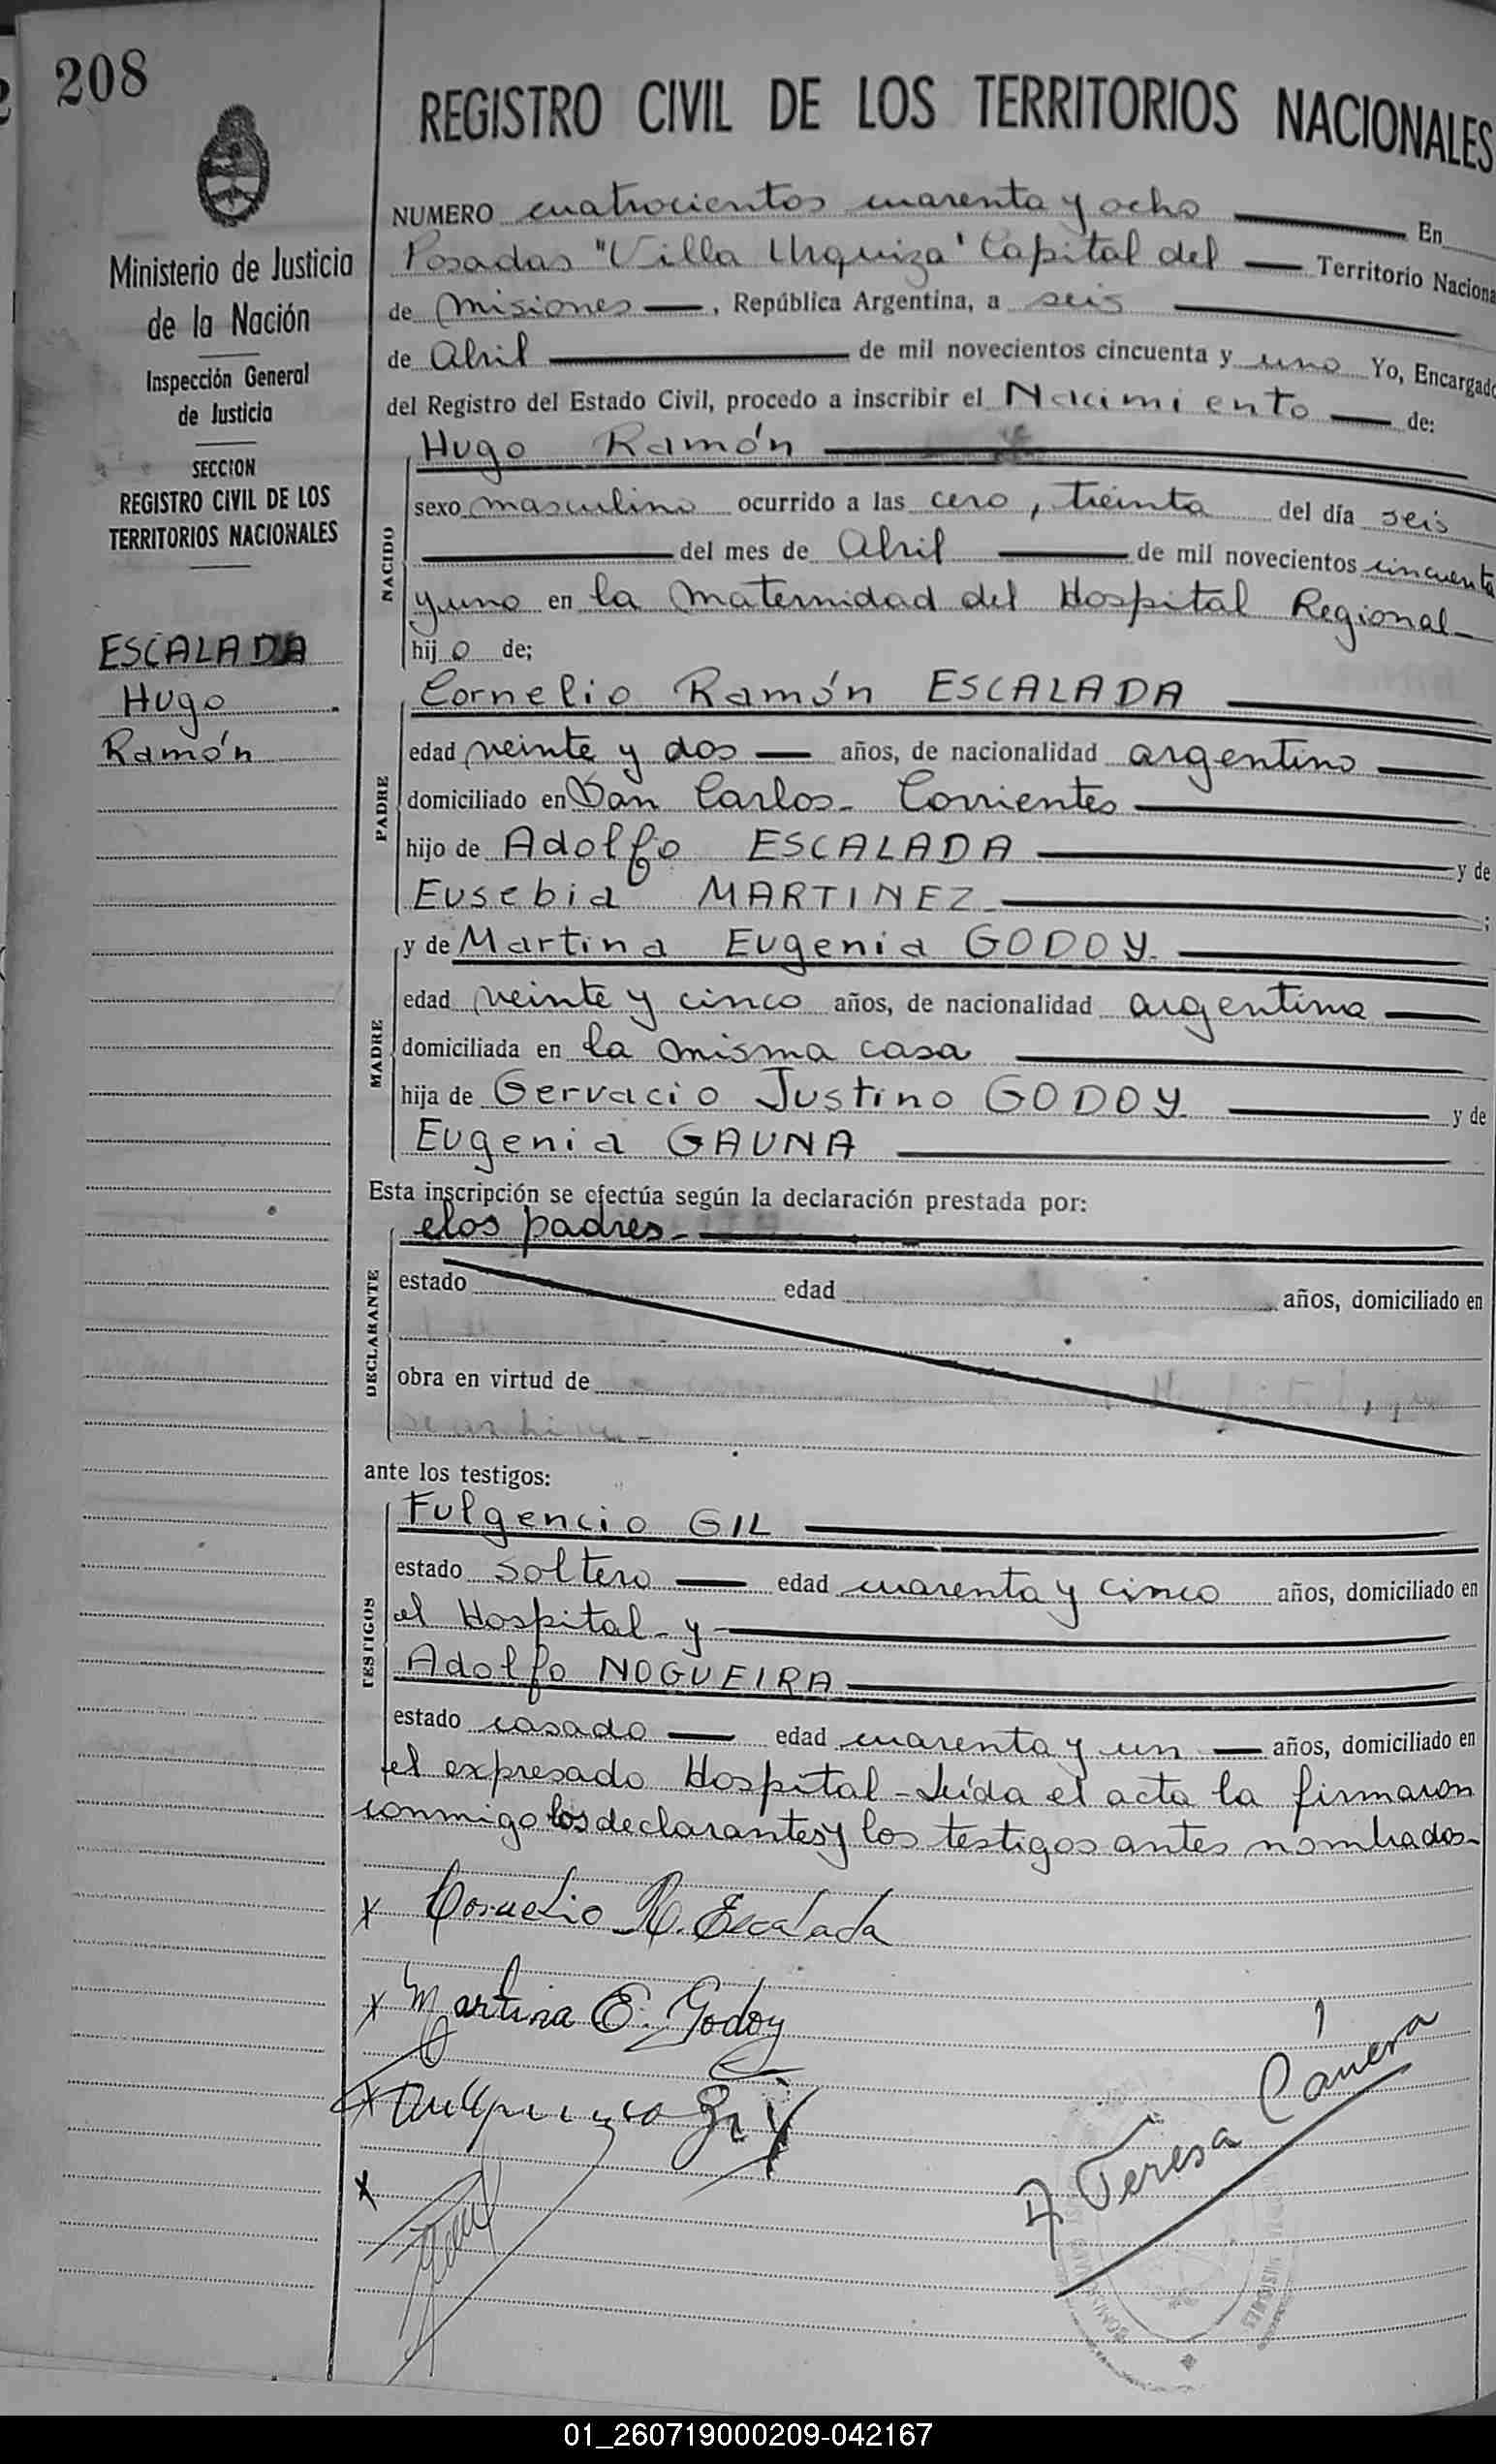 208
REGISTRO CIVIL DE LOS TERRITORIOS NACIONALES
Ministerio de Justicia
de la Nación
Inspección General
de Justicia
SECCION
REGISTRO CIVIL DE LOS
TERRITORIOS NACIONALES
ESCALADA
Hugo
Ramón
NUMERO cuatrocientos cuarenta y ocho En
Posadas "Villa Urquiza" Capital del Territorio Naciona
de Misiones, República Argentina, a seis
de Abril de mil novecientos cincuenta y uno Yo, Encargado
del Registro del Estado Civil, procedo a inscribir el Nacimiento de:
NACIDO
Hugo Ramón
sexo masculino ocurrido a las cero, treinta del día seis
del mes de Abril de mil novecientos cincuenta
y uno en la Maternidad del Hospital Regional
hijo de;
PADRE
Cornelio Ramón ESCALADA
edad veinte y dos años, de nacionalidad argentino
domiciliado en San Carlos - Corrientes
hijo de Adolfo ESCALADA y de
Eusebia MARTINEZ ;
MADRE
y de Martina Eugenia GODOY
edad veinte y cinco años, de nacionalidad argentina
domiciliada en la misma casa
hija de Gervacio Justino GODOY y de
Eugenia GAUNA
Esta inscripción se efectúa según la declaración prestada por:
DECLARANTE
los padres -
estado edad años, domiciliado en
obra en virtud de
ante los testigos:
TESTIGOS
Fulgencio GIL
estado soltero edad cuarenta y cinco años, domiciliado en
el Hospital - y
Adolfo NOGUEIRA
estado casado edad cuarenta y un años, domiciliado en
el expresado Hospital - Leída el acta la firmaron
conmigo los declarantes y los testigos antes nombrados -
x Cornelio R. Escalada
x Martina E. Godoy
x Fulgencio Gil
x
A Teresa Cánera
01_260719000209-042167